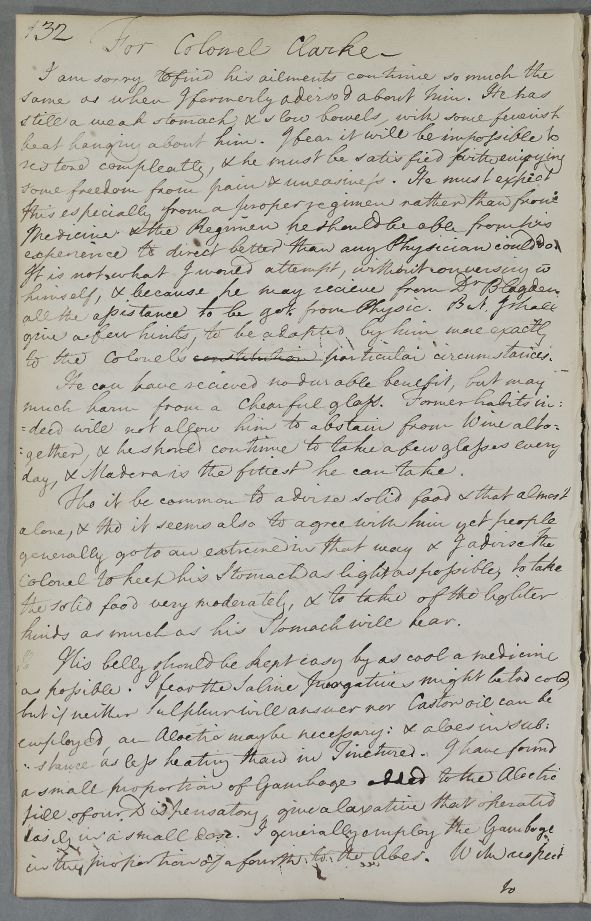 132
For Colonel Clarke
I am sorry to find his ailments continue so much the
same as when I formerly advised about him. He has
still a weak stomach & slow bowels, with some feverish
heat hanging about him. I fear it will be impossible to
restore compleatly, & he must be satisfied with enjoying
some freedom from pain & uneasiness. He must expect
this especially from a proper regimen rather than from
Medicine & the Regimen he should be able from his
experience to direct better than any Physician could do
It is not what I would attempt, without conversing w
himself, & because he may recieve from Dr Blagden
all the assistance to be got from Physic. But I shall
give a few hints, to be adapted by him more exactly
to the Colonel's constitution particular circumstances.
He can have recieved no durable benefit, but may
much harm from a chearful glass. Former habits in:
:deed will not allow him to abstain from Wine alto=
:gether, & he should continue to take a few glasses every
day, & Madera is the fittest he can take.
Tho it be common to advise solid food & that almost
alone, & tho it seems also to agree with him yet people
generally go to an extreme in that way & I advise the
Colonel to keep his Stomach as light as possible, to take
the solid food very moderately, & to take of the lighter
kinds as much as his Stomach will bear.
His belly should be kept easy by as cool a medicine
as possible. I fear the Saline Purgatives might be too cold,
but if neither Sulphur will answer nor Castor oil can be
employed, an Aloetic may be necessary: & aloes in sub:
:stance is less heating than in Tinctured. I have found
a small proportion of Gamboge added to the Aloetic
pill of our Dispensatory, give a laxative that operated
easily in a small dose. I generally employ the Gamboge
in the proportion of a fourth to the Aloes. With respect
to